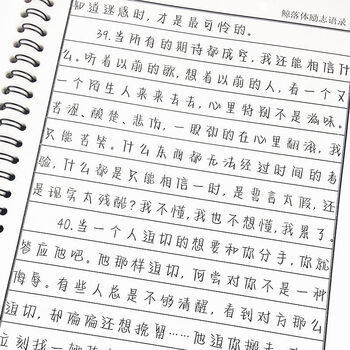 鲸落体励志语录
知道迷惑时，才是最可怜的。
39.当所有的期待都成空，我还能相信什
么。听着以前的歌，想着以前的人，看一个又
一个陌生人来来去去，心里特别不是滋味。
苦涩、酸楚、悲伤，一股弥的在心里翻滚，我
只能苦笑。什么东西都无法经过时间的考
验，什么都是只能相信一时，是誓言太假，还
是现实太残酷？我不懂，我也不想懂，我累了。
40.当一个人迫切的想要和你分手，你就
答应他吧。他那样迫切，何尝对你不是一种
侮辱。有些人总是不够清醒，看到对方那么
迫切，却偏偏还想挽留……他迫你搬走
立刻找一